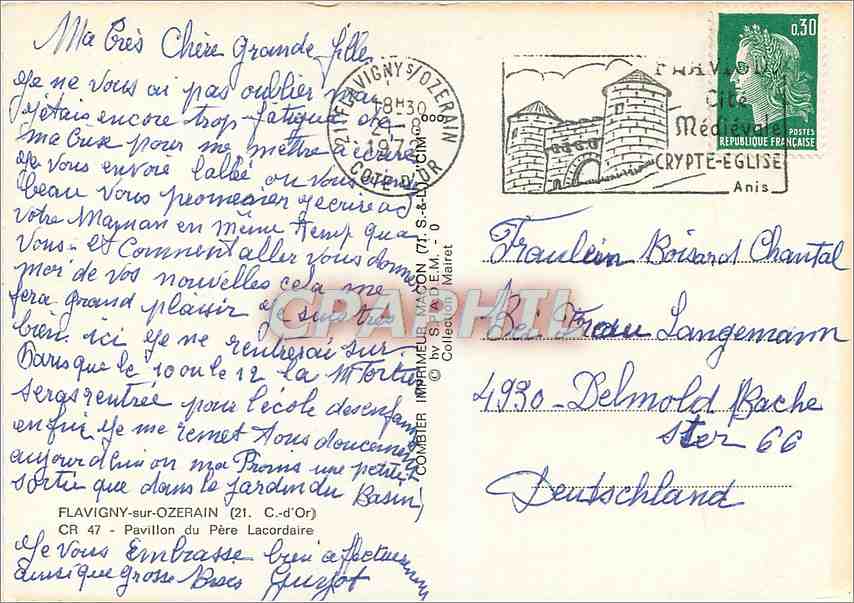 Ma très Chère Grande fille
je ne vous ai pas oublier mai
j'étais encore trop fatigué de
ma Cure pour me mettre a écrire
Je vous envoie
beau vous promener j'écrirai a
votre Maman en même temp que
vous et Comment aller vous donne
moi de vos nouvelles cela me
fera grand plaisir Je suis très
bien ici je ne rentrerai sur
Paris que le 10 ou le 12 la
seras rentrée pour l'école des enfan
enfin je me remet tous doucement
aujourd'hui on ma Promis une petite
sortie que dans le jardin du
FLAVIGNY-sur-OZERAIN (21. C.-d'Or)
CR 47 - Pavillon du Père Lacordaire
Je vous Embrasse bien
ainsi que grosse Bises
21 FLAVIGNY S/OZERAIN
18H30
21-8
COTE D'OR
COMBIER IMPRIMEUR MACON (71. S.-&-L.) "CIM"
© by S.P.A.D.E.M. - 0
Collection Malret
CPARHTI
FLAVIGNY
Cité
Médiévale
CRYPTE-EGLISE
Anis
0,30
POSTES
REPUBLIQUE FRANÇAISE
Fraulein Boisard Chantal
Bei Frau Langemann
4930 - Delmold Bache
ster 66
Deutschland